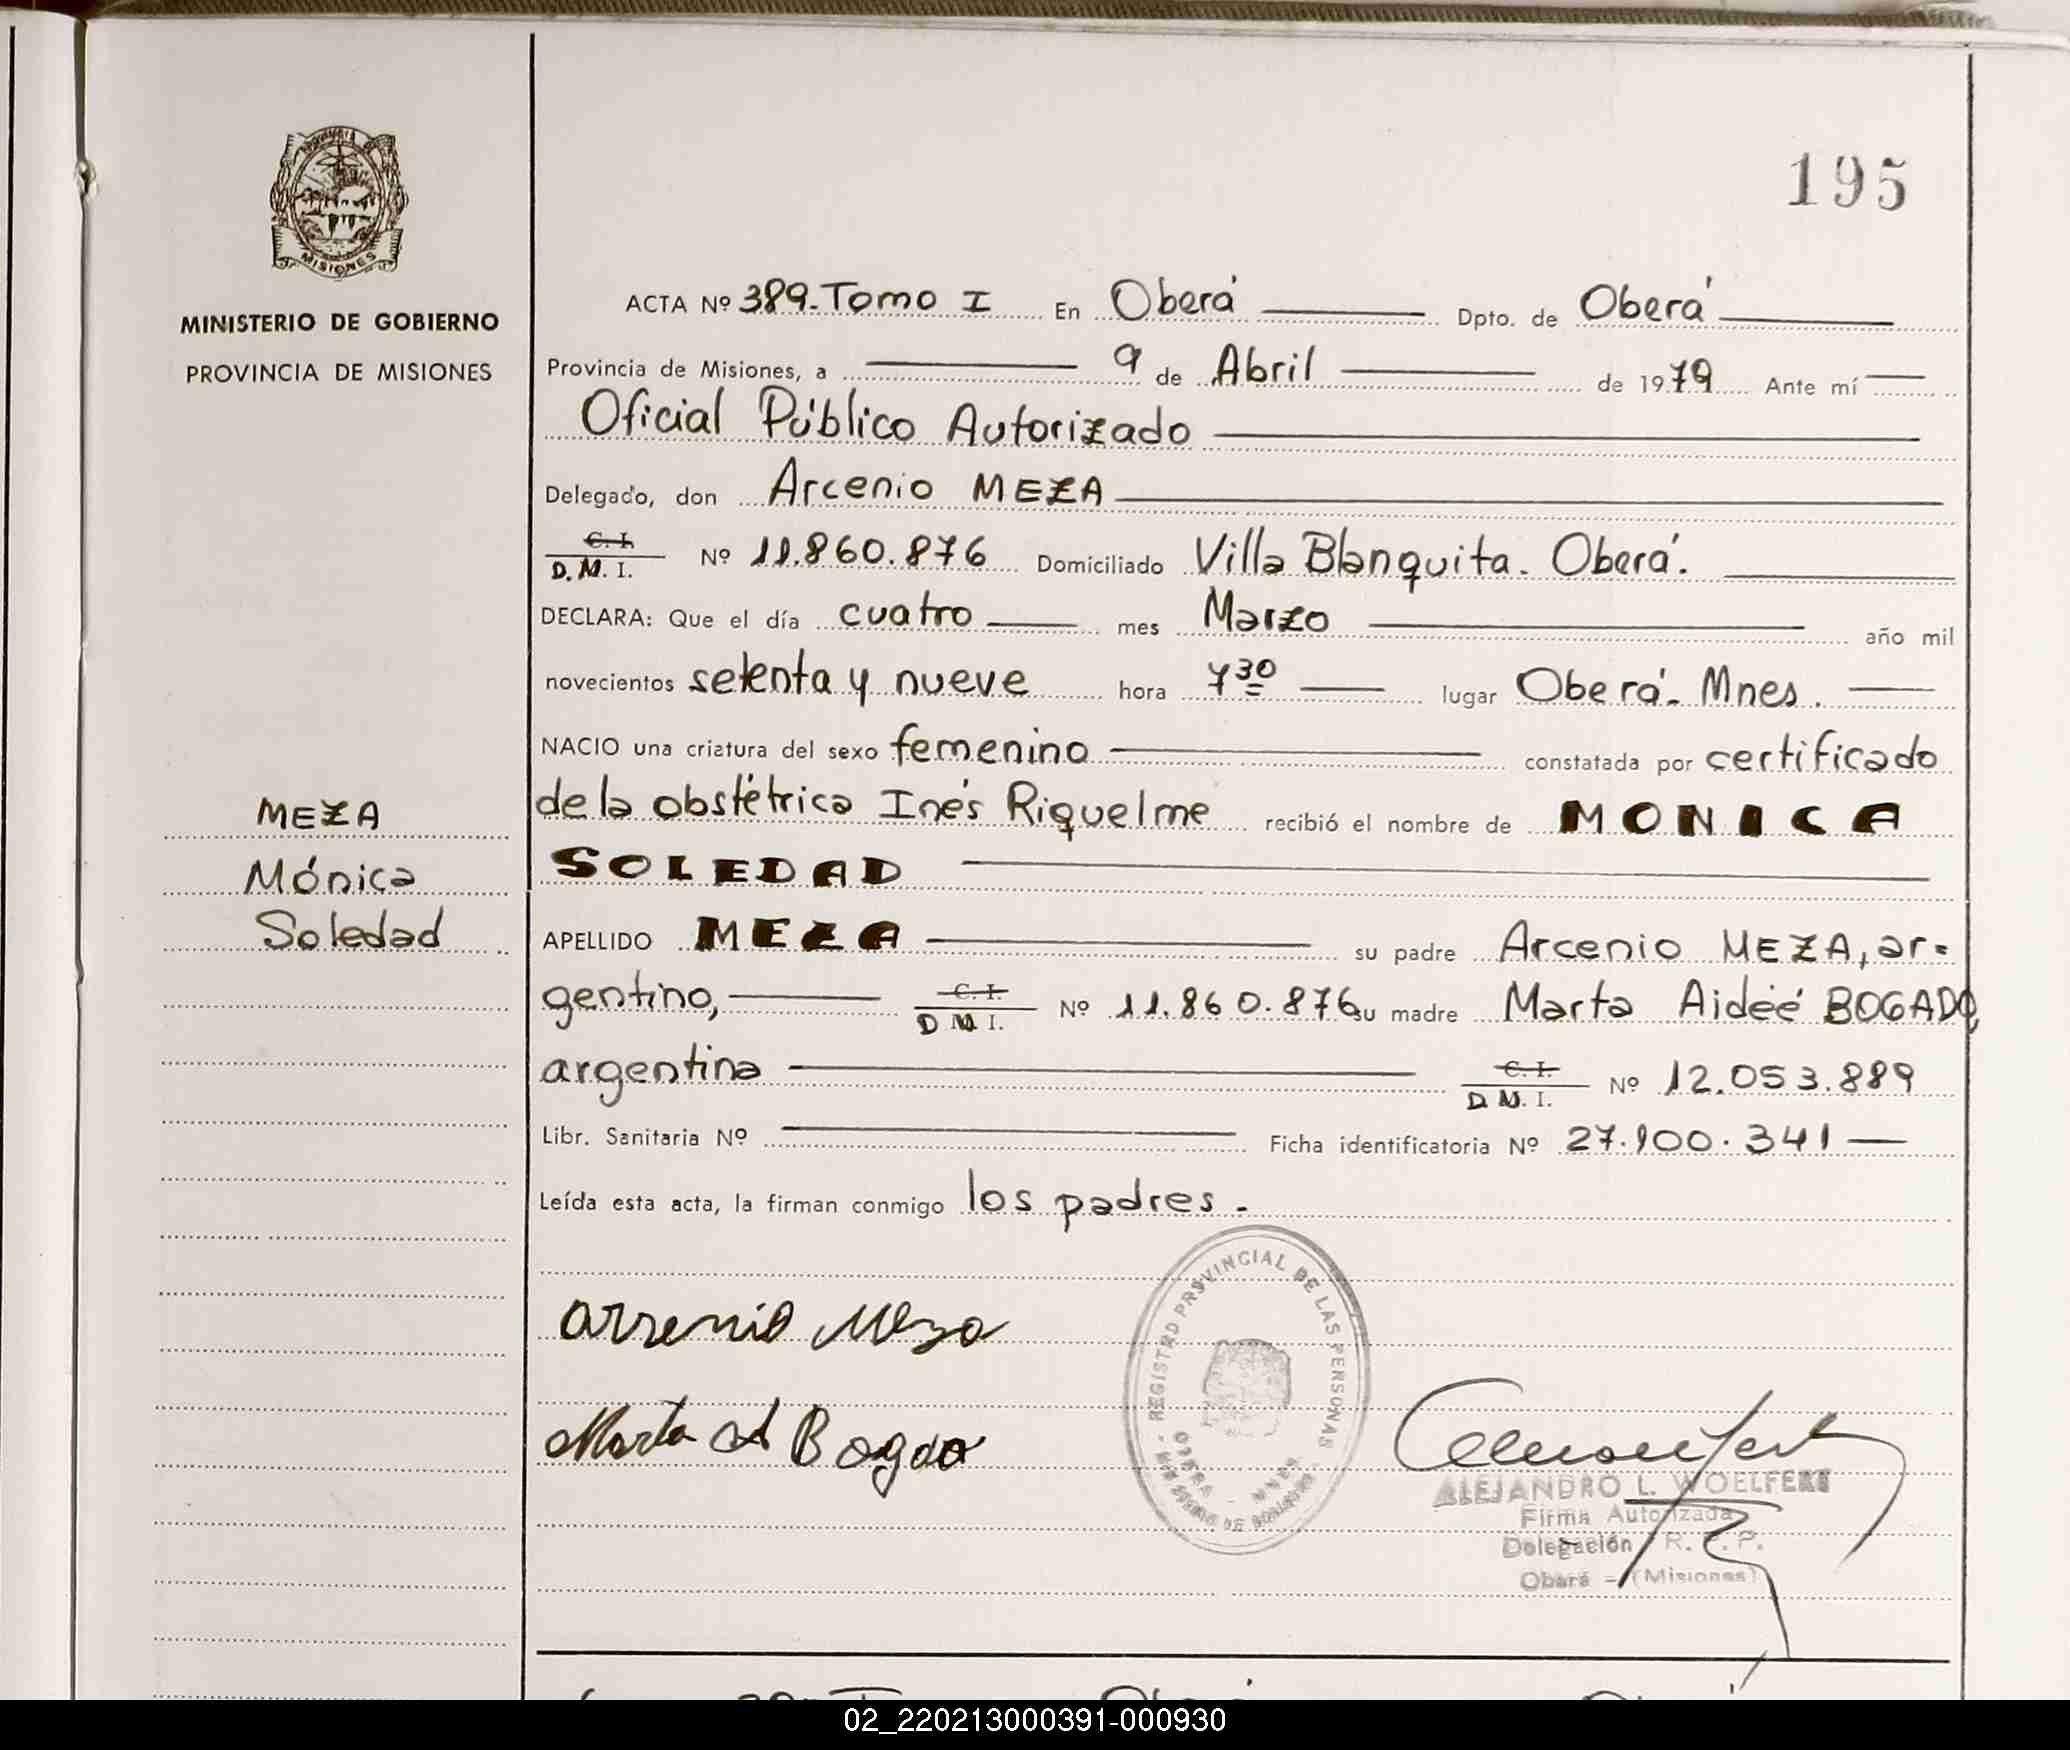 195
PROVINCIA
MISIONES
MINISTERIO DE GOBIERNO
PROVINCIA DE MISIONES
MEZA
Mónica
Soledad
ACTA Nº 389-Tomo I En Oberá Dpto. de Oberá
Provincia de Misiones, a 9 de Abril de 1979 Ante mí
Oficial Público Autorizado
Delegado, don Arcenio MEZA
C. I.
D. M. I. Nº 11.860.876 Domiciliado Villa Blanquita. Oberá.
DECLARA: Que el día cuatro mes Marzo año mil
novecientos setenta y nueve hora 7 30 lugar Oberá. Mnes.
NACIO una criatura del sexo femenino constatada por certificado
de la obstétrica Inés Riquelme recibió el nombre de MONICA
SOLEDAD
APELLIDO MEZA su padre Arcenio MEZA, ar-
gentino, C. I. D M I. Nº 11.860.876 su madre Marta Aideé BOGADO,
argentina C. I. D. M. I. Nº 12.053.889
Libr. Sanitaria Nº Ficha identificatoria Nº 27.100.341
Leída esta acta, la firman conmigo los padres.
REGISTRO PROVINCIAL DE LAS PERSONAS
OBERA - MNES
Arsenio Meza
Marta A Bogado
ALEJANDRO L. WOELFERT
Firma Autorizada
Delegación R. P. P.
Oberá - (Misiones)
02_220213000391-000930